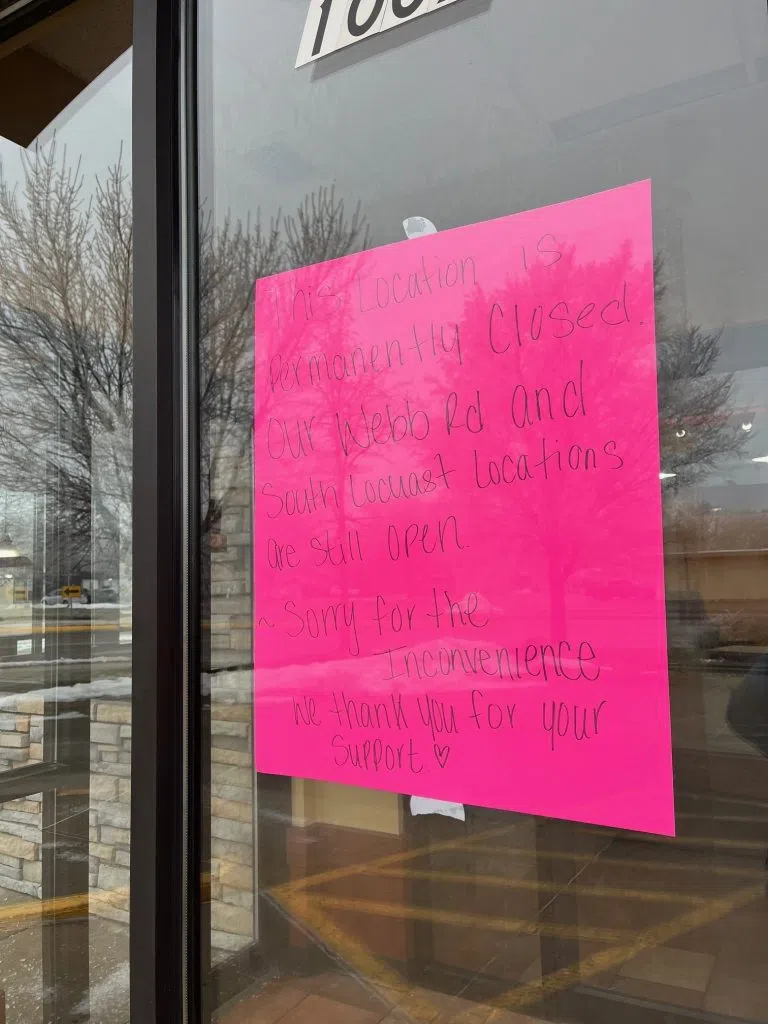 This Location is
Permanently Closed.
Our Webb Rd and
South Locuast Locations
are still open.
~ Sorry for the
Inconvenience
We thank you for your
Support ♡